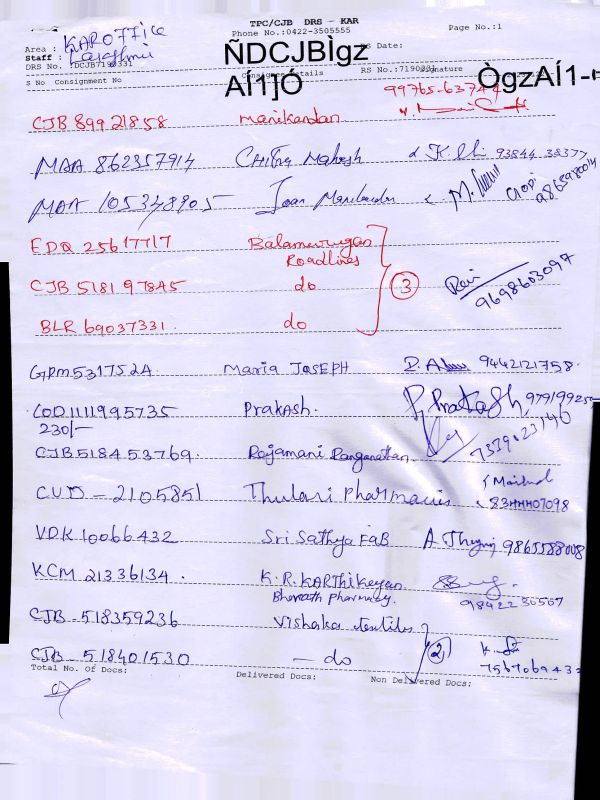 TPC/CJB DRS - KAR
Phone No.:0422-3505555 Page No.:1
Area : KAR OFFICE
Staff :
DRS No. :DCJB7190331 RS Date:
ÑDCJBÌgz
AÍ1]Ó
ÒgzAÍ1-
S No Consignment No Consignee Details RS No.:7190331 Signature
99765-63744
CJB 89921858 Manikandan
MAA 862357914 Chitra Mahesh 93844 38377
MAA 105348905 Gopi 9865980014
EDQ 25617717 Balamurugan Roadlines
CJB 5181 97845 do 3 Ravi 9698603097
BLR 69037331 do
GPM531752A Maria JOSEPH 9442121758
COD1111995735 Prakash. P. Pratash, 97919925
230/- 7339023140
CJB518453769. Rajamani Ranganathan
CUD - 2105851 Thulasi Pharmacies 83HHH07098
VDK 10066432 Sri Sathya FAB 9865588008
KCM 21336134. K.R. KARThikeyan
Bharath Pharmacy. 9842236567
CJB - 518359236 Vishaka textiles
CJB - 518401530 - do 2 7567069432
Total No. Of Docs: Delivered Docs: Non Delivered Docs: